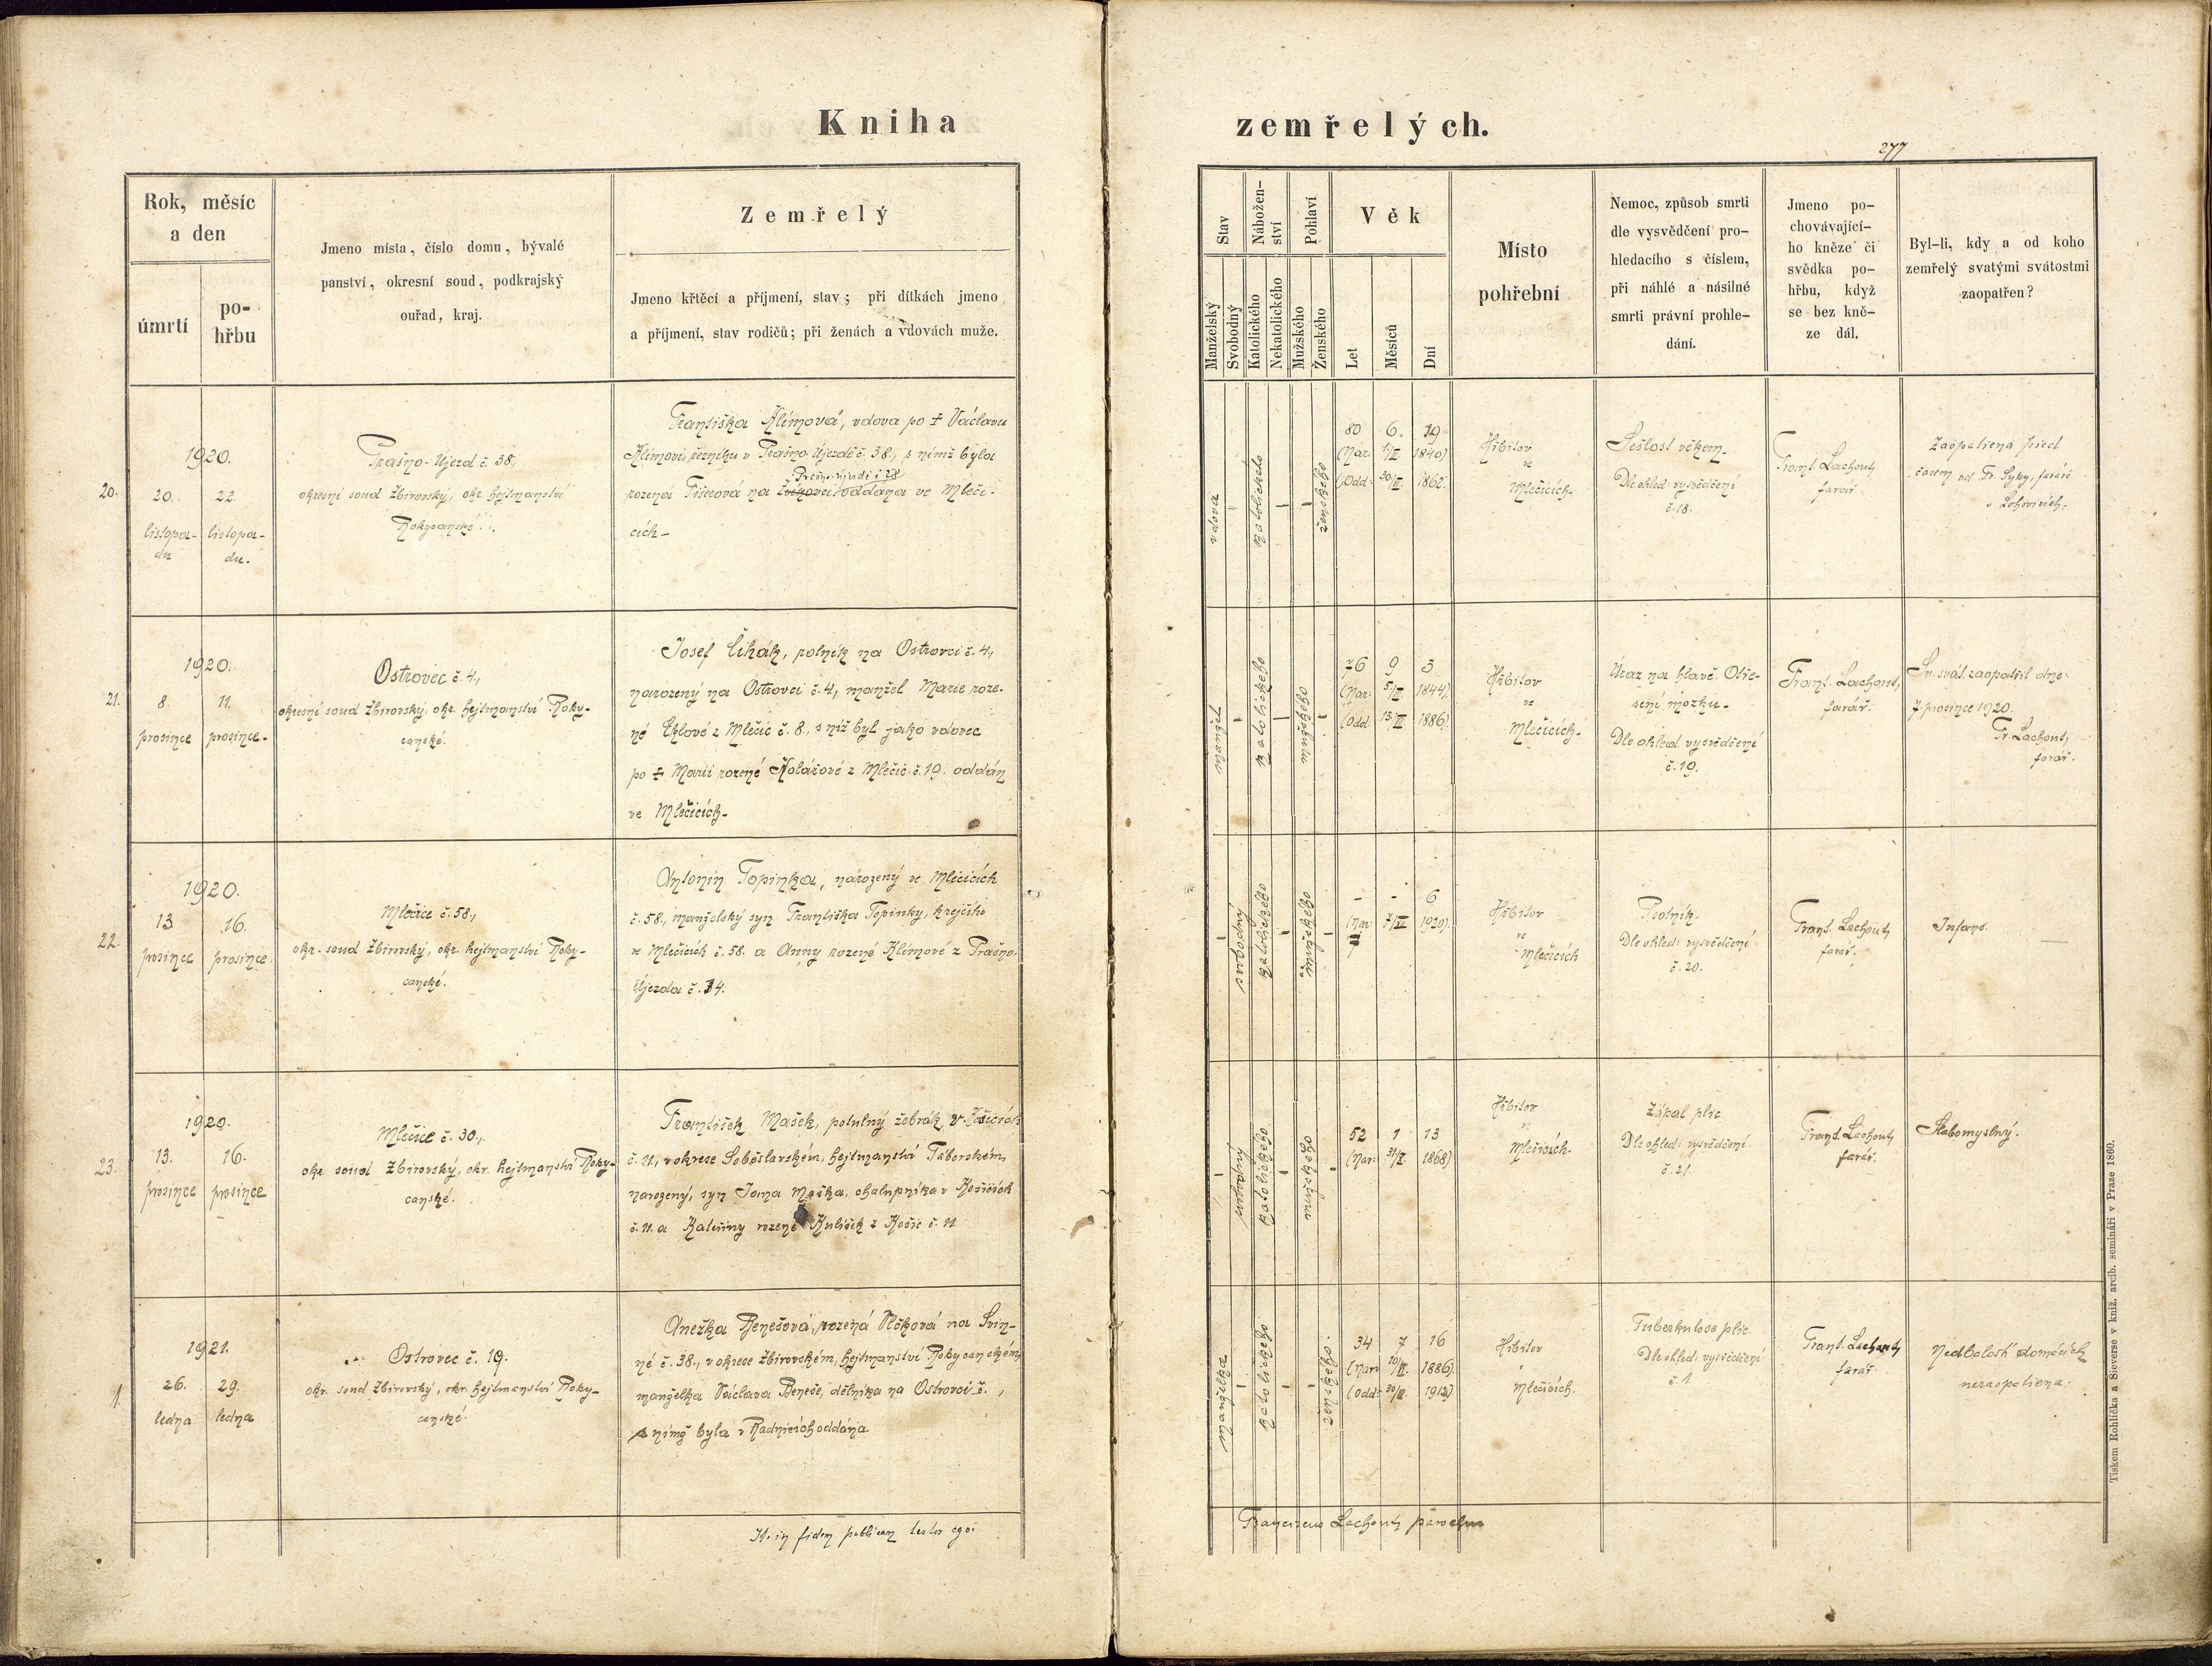 Kniha zemřelých.
277
Rok, měsíc
a den
úmrtí
po-
hřbu
Jmeno místa, číslo domu, bývalé
panství, okresní soud, podkrajský
ouřad, kraj.
Zemřelý
Jmeno křtěcí a příjmení, stav; při dítkách jmeno
a příjmení, stav rodičů; při ženách a vdovách muže.
Stav
Manželský
Svobodný
Nábožen-
ství
Katolického
Nekatolického
Pohlaví
Mužského
Ženského
Věk
Let
Měsíců
Dní
Místo
pohřební
Nemoc, způsob smrti
dle vysvědčení pro-
hledacího s číslem,
při náhlé a násilné
smrti právní prohle-
dání.
Jmeno po-
chovávající-
ho kněze či
svědka po-
hřbu, když
se bez kně-
ze dál.
Byl-li, kdy a od koho
zemřelý svatými svátostmi
zaopatřen?
20.
1920.
20.
listopa-
du
22.
listopa-
du.
Prašno-Újezd č. 38.,
okresní soud Zbirovský, okr. hejtmanství
Rokycanské.
Františka Klímová, vdova po † Václavu
Klímovi, řezníku v Prašno-Újezdě č. 38., s nímž byla
Prašno-újezdě č. 28
rozená Fišerová na oddána ve Mleči-
cích-
vdova
katolického
ženského
80 6. 19
(Nar. 1/II 1840)
(Odd: 30/II. 1862.
Hřbitov
ve
Mlečicích-
Sešlost věkem.
Dle ohled: vysvědčení
č. 18.
Frant. Lachout,
farář
Zaopatřena před
časem od Fr. Syky, faráře
v Lohovicích.
21.
1920.
8.
prosince
11.
prosince-
Ostrovec č. 4.,
okresní soud Zbirovský, okr. hejtmanství Roky-
canské.
Josef Čihák, rolník na Ostrovci č. 4.,
narozený na Ostrovci č. 4., manžel Marie roze-
né Eklové z Mlečic č. 8., s níž byl jako vdovec
po † Marii rozené Kolářové z Mlečic č. 19. oddán
ve Mlečicích-
manžel
katolického
mužského
76 9 3
(Nar: 5/III 1844).
(Odd: 13/ 1886).
Hřbitov
ve
Mlečicích-
Úraz na hlavě. Otře-
sení mozku-
Dle ohled. vysvědčení
č. 19.
Frant. Lachout,
farář.
Sv. svát. zaopatřil dne
7. prosince 1920.
Fr. Lachout,
farář.
22.
1920.
13.
prosince
16.
prosince.
Mlečice č. 58.,
okr. soud Zbirovský, okr. hejtmanství Roky-
canské.
Antonín Topinka, narozený ve Mlečicích
č. 58., manželský syn Františka Topinky, krejčího
ve Mlečicích č. 58. a Anny rozené Klímové z Prašno-
Újezda č. 34.
svobodný
katolického
mužského
- - 6
(Nar: 7/XII 1920).
Hřbitov
ve
Mlečicích
Psotník.
Dle ohled: vysvědčení
č. 20.
Frant. Lachout,
farář.
Infans.
23.
1920.
13.
prosince
16.
prosince
Mlečice č. 30.,
okr. soud Zbirovský, okr. hejtmanství Roky-
canské.
František Mašek, potulný žebrák, v Košicích
č. 11., v okrese Soběslavském, hejtmanství Táborském,
narozený, syn Jana Maška, chalupníka v Košicích
č. 11. a Kateřiny rozené z Košic č. 11
svobodný
katolického
mužského
52 1 13
(Nar. 31/X. 1868)
Hřbitov
ve
Mlečicích-
Zápal plic.
Dle ohled: vysvědčení.
č. 21.
Frant. Lachout,
farář.
Slabomyslný.
1.
1921.
26.
ledna
29.
ledna
Ostrovec č. 19.
okr. soud Zbirovský, okr. hejtmanství Roky-
canské.
Anežka Benešová, rozená Vlčková na Svin-
né č. 38., v okrese Zbirovském, hejtmanství Rokycanském,
manželka Václava Beneše, dělníka na Ostrovci č. ,
s nímž byla v Radnicích oddána.
manželka
katolického
ženského.
34 7 16
(Nar: 10/VI. 1886).
(Odd: 30/ 1912)
Hřbitov
Mlečicích.
Tuberkulosa plic.
Dle ohled: vysvědčení
č. 1.
Frant. Lachout,
farář
Nedbalostí domácích
nezaopatřena.
In fidem publicam testor ego:
Franciscus Lachout, parochus
Tiskem Rohlíčka a Sieverse v kníž. arcib. semináři v Praze 1860.